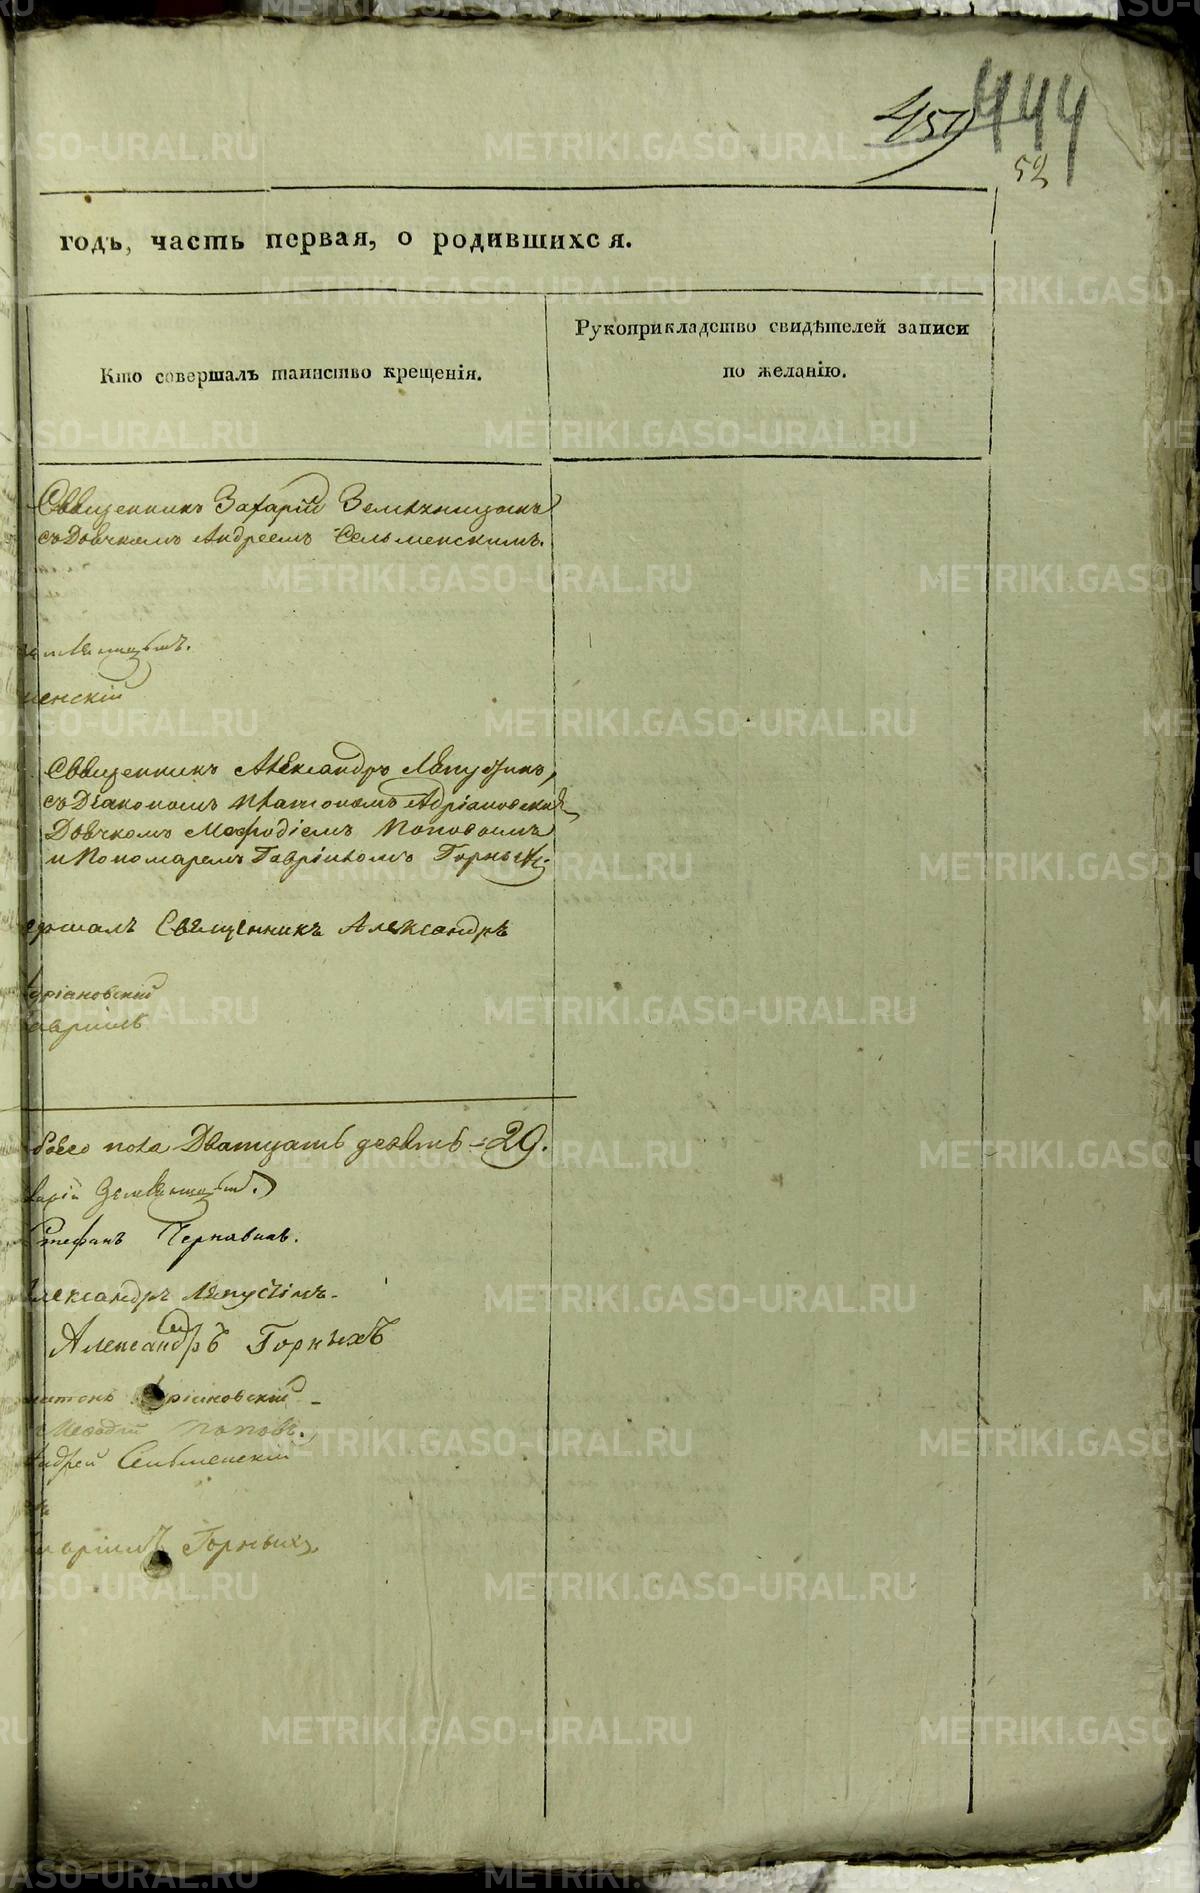 459 444
52
годъ, часть первая, о родившихся.
Кто совершалъ таинство крещенія.
Рукоприкладство свидѣтелей записи
по желанію.
Священникъ Захарій Земляницынъ
съ Дьячкомъ Андреемъ Сельменскимъ.
менскій
Священникъ Александръ Ляпустинъ,
съ Діакономъ Платономъ Адріановскимъ
Дьячкомъ Мефодіемъ Поповымъ
и Пономаремъ Гавріиломъ Горныхъ
ершалъ Священникъ Александръ
дріановскій
авріилъ
обоего пола Двatцать девять - 29.
харій Земляницынъ.
Стефанъ Чернавинъ.
Александръ Ляпустинъ.
Александръ Горныхъ
латонъ ріановскій
Мефодій Поповъ.
Андрей Сельменскій
авріилъ Горныхъ
METRIKI.GASO-URAL.RU